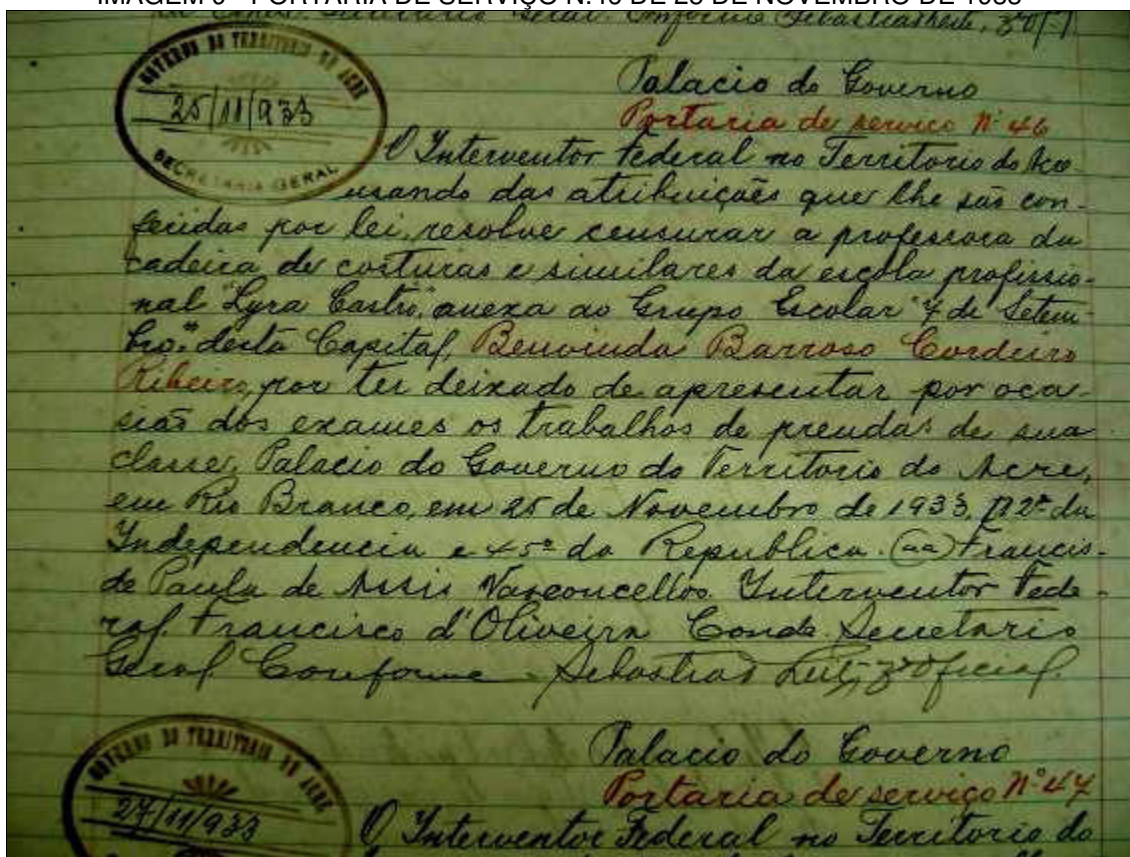 Palacio do Governo
Portaria de serviço Nº 46
GOVERNO DO TERRITORIO DO ACRE
25/11/933
SECRETARIA GERAL
O Interventor Federal no Territorio do Acre
usando das atribuições que lhe são con-
feridas por lei, resolve censurar a professora da
cadeira de costuras e similares da escola profissio-
nal "Lyra Castro", anexa ao Grupo Escolar "7 de Setem-
bro" desta Capital, Benvinda Barroso Cordeiro
Ribeiro, por ter deixado de apresentar por oca-
sião dos exames os trabalhos de prendas de sua
classe, Palacio do Governo do Territorio do Acre,
em Rio Branco, em 25 de Novembro de 1933, 112º da
Independencia e 45º da Republica. (aa) Francis-
de Paula de Assis Vasconcellos. Interventor Fede-
ral. Francisco d'Oliveira Conde. Secretario
Geral. Conforme Sebastião 3º Oficial.
GOVERNO DO TERRITORIO DO ACRE
27/11/933
Palacio do Governo
Portaria de serviço Nº 47
O Interventor Federal no Territorio do